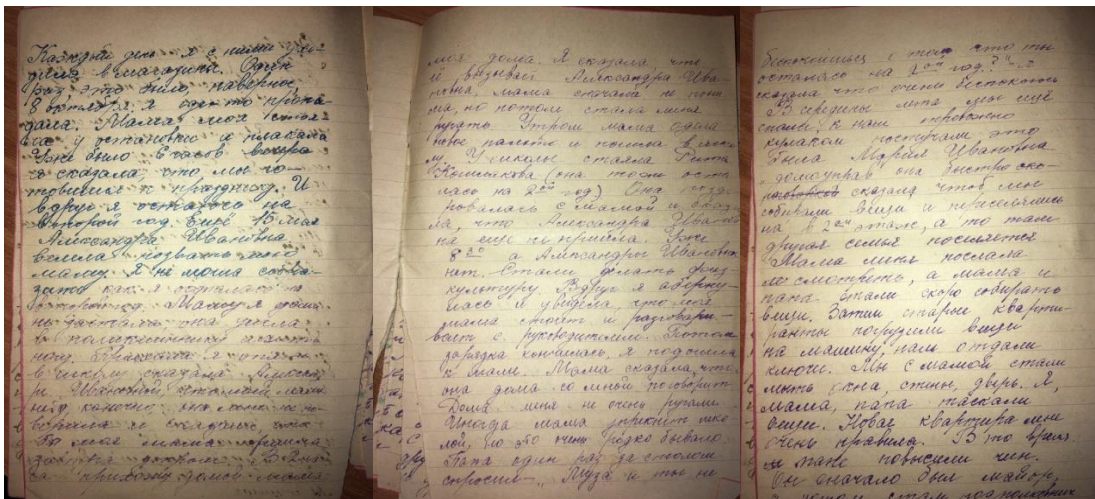 Каждый день я с ними хо-
дила в магазины. Один
раз это было, наверное,
8 октября я где-то пропа-
дала. Мама моя стоя-
ла у остановки и плакала
Уже было 6 часов вечера
я сказала, что мы го-
товимся к празднику. И
вдруг я осталась на
второй год. Ещё 15 мая
Александра Ивановна
велела позвать мою
маму. Я не могла сказа-
зать как я осталась на
второй год. Маму я дома
не застала она ушла
в поликлинику
я опять
в школу сказала
Ивановной, что моей мамы
нет, конечно, она мне не по-
верила и сказала, что-
бы моя мама пришла
завтра утром. В 2 ча-
са прихожу домой мама
моя дома. Я сказала что
её вызывает Александра Ива-
новна, мама сначала не поня-
ла, но потом стала меня
ругать. Утром мама одела
новое пальто и пошла в шко-
лу. У школы стояла Рита
(она тоже оста-
лась на 2ой год) Она поздо-
ровалась с мамой и сказа-
ла, что Александра Иванов-
на еще не пришла. Уже
8 20 а Александры Ивановны
нет. Стали делать физ-
культуру. Вдруг я оберну-
лась и увидела что моя
мама стоит и разговари-
вает с руководителем. Потом
зарядка кончилась, я подошла
к маме. Мама сказала, что
она дома со мной поговорит
Дома меня не очень ругали.
Иногда мама упрекнёт шко-
лой, но это очень редко бывало.
Папа один раз за столом
спросил „Муза а ты не
беспокоишься о том что ты
осталась на 2ой год?" я
сказала что очень беспокоюсь
В середине лета мы ещё
спали, к нам тревожно
кулаком постучали это
была Мария Ивановна
домоуправ она быстро ско-
сказала чтоб мы
собирали вещи и переселялись
на в 2ой этаж, а то там
другая семья поселяется
Мама меня послала
посмотреть, а мама и
папа стали скоро собирать
вещи. Затем старые кварти-
ранты погрузили вещи
на машину, нам отдали
ключи. Мы с мамой стали
мыть окна, стены, дверь. Я,
мама, папа таскали
вещи. Новая квартира мне
очень нравилась. В то время
и папе повысили чин.
Он сначало был майор,
а потом стал подполковник